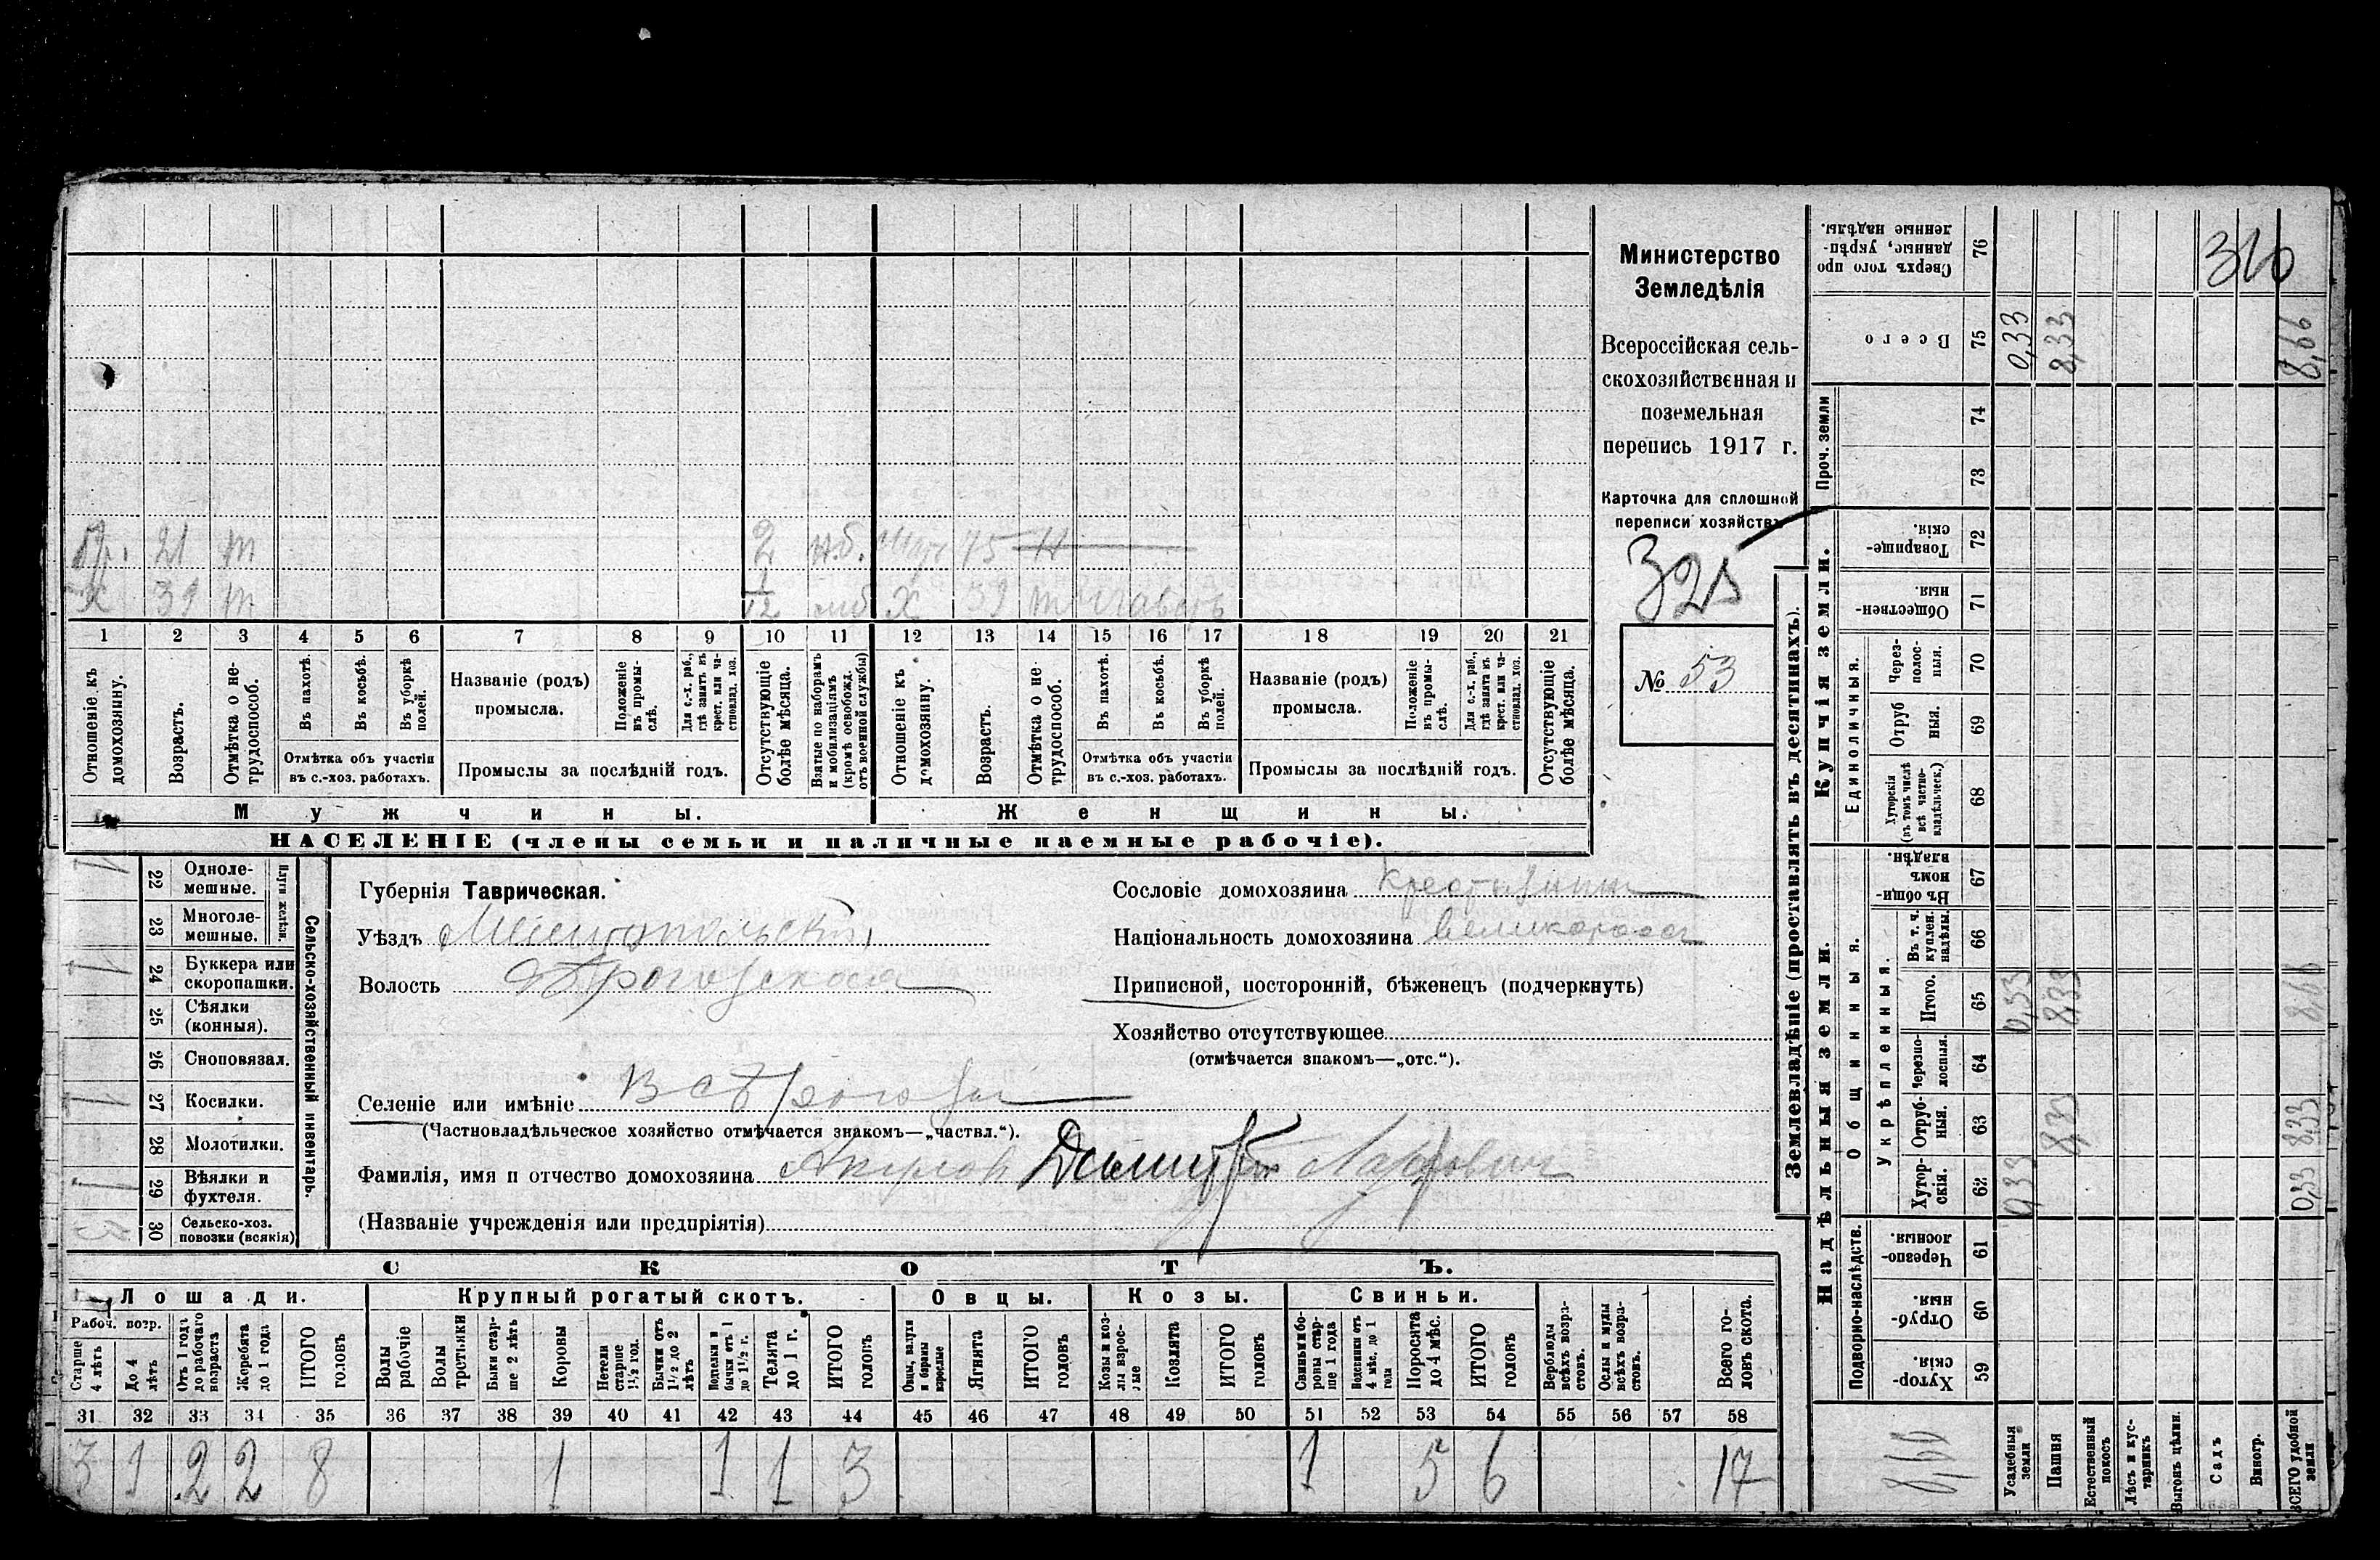 Министерство
Земледѣлія
Всероссійская сель-
скохозяйственная и
поземельная
перепись 1917 г.
Карточка для сплошной
переписи хозяйствъ
325
№ 53
Пр. 21 т 2 75 Н
Х 39 т 1/12 Х 39 т
1 2 3 4 5 6 7 8 9 10 11 12 13 14 15 16 17 18 19 20 21
Отношеніе къ домохозяину.
Возрастъ.
Отмѣтка о не-трудоспособ.
Въ пахотѣ.
Въ косьбѣ.
Въ уборкѣ полей.
Отмѣтка объ участіи
въ с.-хоз. работахъ.
Названіе (родъ)
промысла.
Положеніе въ промы-слѣ.
Для с.-х. раб., гдѣ занятъ въ крест. или ча-стновлад. хоз.
Промыслы за послѣдній годъ.
Отсутствующіе болѣе мѣсяца.
Взятые по наборамъ и мобилизаціямъ (кромѣ освобожд. отъ военной службы)
Отношеніе къ домохозяину.
Возрастъ.
Отмѣтка о не-трудоспособ.
Въ пахотѣ.
Въ косьбѣ.
Въ уборкѣ полей.
Отмѣтка объ участіи
въ с.-хоз. работахъ.
Названіе (родъ)
промысла.
Положеніе въ промы-слѣ.
Для с.-х. раб., гдѣ занята въ крест. или ча-стновлад. хоз.
Промыслы за послѣдній годъ.
Отсутствующіе болѣе мѣсяца.
Мужчины. Женщины.
НАСЕЛЕНІЕ (члены семьи и наличные наемные рабочіе).
Сельско-хозяйственный инвентарь.
Плуги желѣзн.
22 Одноле-мешные. 1
23 Многоле-мешные.
24 Буккера или скоропашки. 1
25 Сѣялки (конныя).
26 Сноповязал.
27 Косилки. 1
28 Молотилки.
29 Вѣялки и фухтеля. 1
30 Сельско-хоз. повозки (всякія)
Губернія Таврическая.
Уѣздъ Мелитопольскій
Волость
Селеніе или имѣніе
(Частновладѣльческое хозяйство отмѣчается знакомъ—„частвл.“).
Фамилія, имя и отчество домохозяина
(Названіе учрежденія или предпріятія)
Сословіе домохозяина крестьянин
Національность домохозяина великоросс
Приписной, посторонній, бѣженецъ (подчеркнуть)
Хозяйство отсутствующее
(отмѣчается знакомъ—„отс.“).
СКОТЪ.
Лошади. Крупный рогатый скотъ. Овцы. Козы. Свиньи.
Рабоч. возр.
Старше 4 лѣтъ
До 4 лѣтъ
Отъ 1 года до рабочаго возраста
Жеребята до 1 года
ИТОГО головъ
Волы рабочіе
Волы третьяки
Быки стар-ше 2 лѣтъ
Коровы
Нетели старше 1½ год.
Бычки отъ 1½ до 2 лѣтъ
Подтелки и бычки отъ 1 до 1½ г.
Телята до 1 г.
ИТОГО головъ
Овцы, валухи и бараны взрослые
Ягнята
ИТОГО головъ
Козы и коз-лы взрос-лые
Козлята
ИТОГО головъ
Свиньи и бо-ровы стар-ше 1 года
Подсвинки отъ 4 мѣс. до 1 года
Поросята до 4 мѣс.
ИТОГО головъ
Верблюды всѣхъ возра-стовъ.
Ослы и мулы всѣхъ возра-стовъ.
Всего го-ловъ скота.
31 32 33 34 35 36 37 38 39 40 41 42 43 44 45 46 47 48 49 50 51 52 53 54 55 56 57 58
3 1 2 2 8 1 1 1 3 1 5 6 17
Землевладѣніе (проставлять въ десятинахъ).
Надѣльныя земли. Купчія земли. Проч. земли
Подворно-наслѣдств.
Общинныя.
Укрѣпленныя.
Единоличныя.
59 Хутор-скія.
60 Отруб-ныя.
61 Черезпо-лосныя.
62 Хутор-скія.
63 Отруб-ныя.
64 Черезпо-лосныя.
65 Итого.
66 Въ т. ч. куплен. надѣлы.
67 Въ общи-номъ владѣн.
68 Хуторскія (въ томъ числѣ всѣ частно-владѣльческ.)
69 Отруб ныя.
70 Через-полос-ныя.
71 Обществен-ныя
72 Товарище-скія.
73
74
75 Всего
76 Сверхъ того про данные, укрѣп-ленные надѣлы.
316
8,66
Усадебныя земли 0,33 0,33 0,33
Пашня 8,33 8,33 8,33
Естественный покосъ
Лѣсъ и кус-тарникъ
Выгонъ цѣлин.
Садъ
Виногр.
ВСЕГО удобной земли 0,33 8,33 8,66 8,66